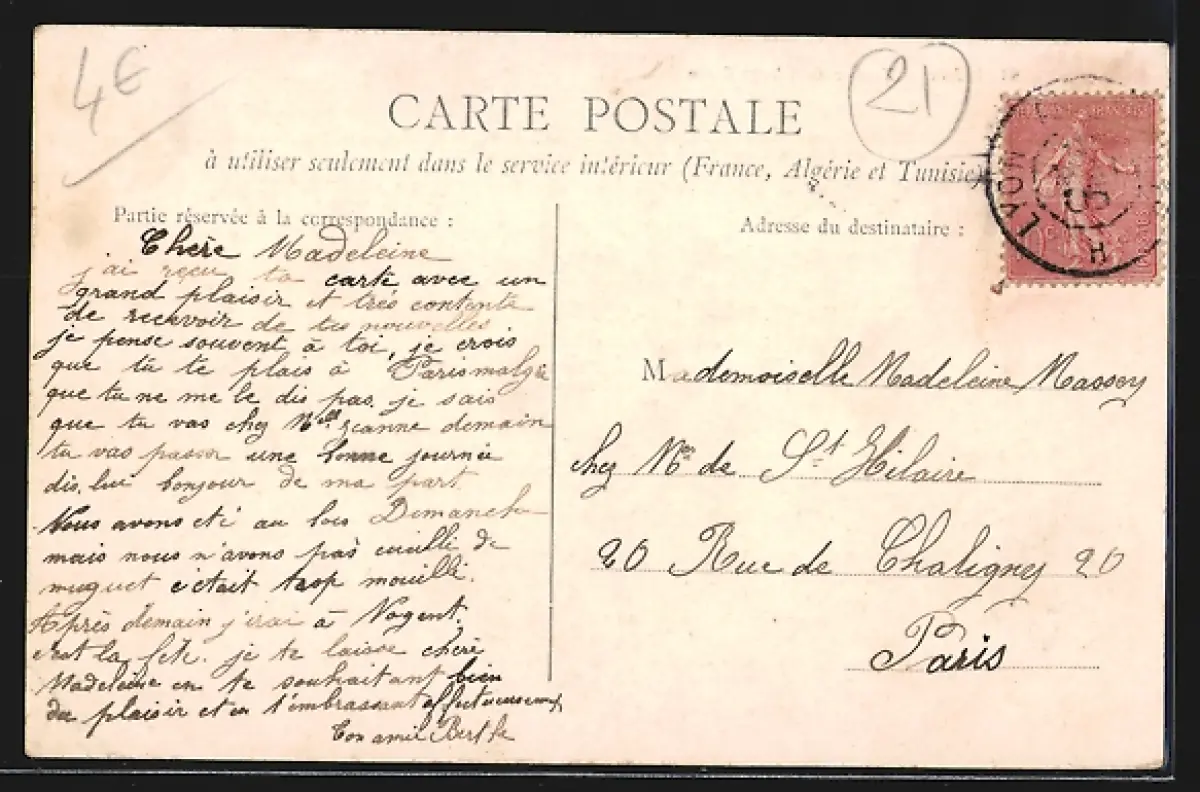 4€
21
CARTE POSTALE
à utiliser seulement dans le service intérieur (France, Algérie et Tunisie)
Partie réservée à la correspondance :
Chère Madeleine
j'ai reçu ta carte avec un
grand plaisir et très contente
de recevoir de tes nouvelles
je pense souvent à toi, je crois
que tu te plais à Paris malgré
que tu ne me le dis pas. je sais
que tu vas chez Mlle Jeanne demain
tu vas passer une bonne journée
dis. lui bonjour de ma part.
Nous avons été au bois Dimanche
mais nous n'avons pas cueilli de
muguet c'était trop mouillé.
Après demain j'irai à Nogent.
c'est la fête. je te laisse chère
Madeleine en te souhaitant bien
du plaisir et en t'embrassant affectueusement
Ton amie Berthe
Adresse du destinataire :
LYON
H
Mademoiselle Madeleine Massey
chez Me de St Hilaire
20 Rue de Chaligny 20
Paris